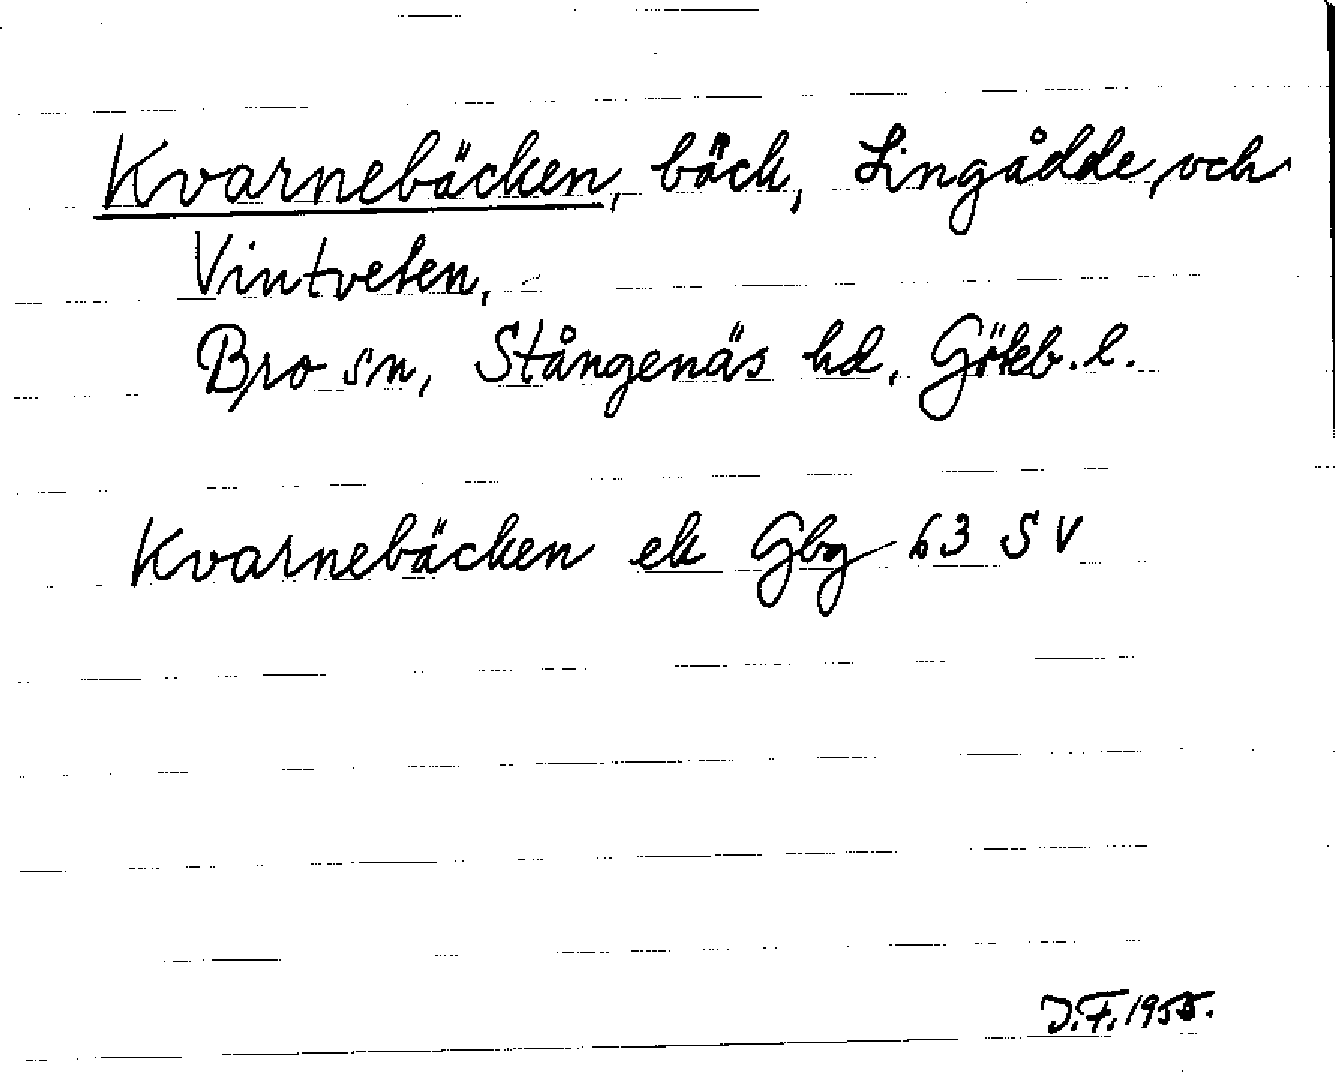 Kvarnebäcken, bäck, Lingådde, och
Vintveten,
Bro sn, Stångenäs hd, Götebb. l.
Kvarnebäcken ek Gbg 63 SV
J.F. 1955.